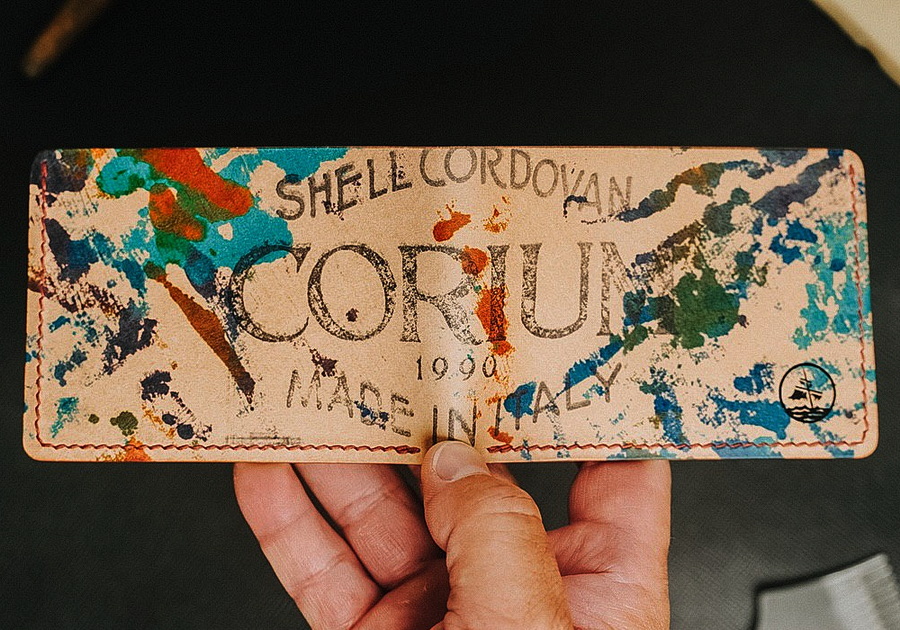 SHELL CORDOVAN
CORIUM
1990
MADE IN ITALY